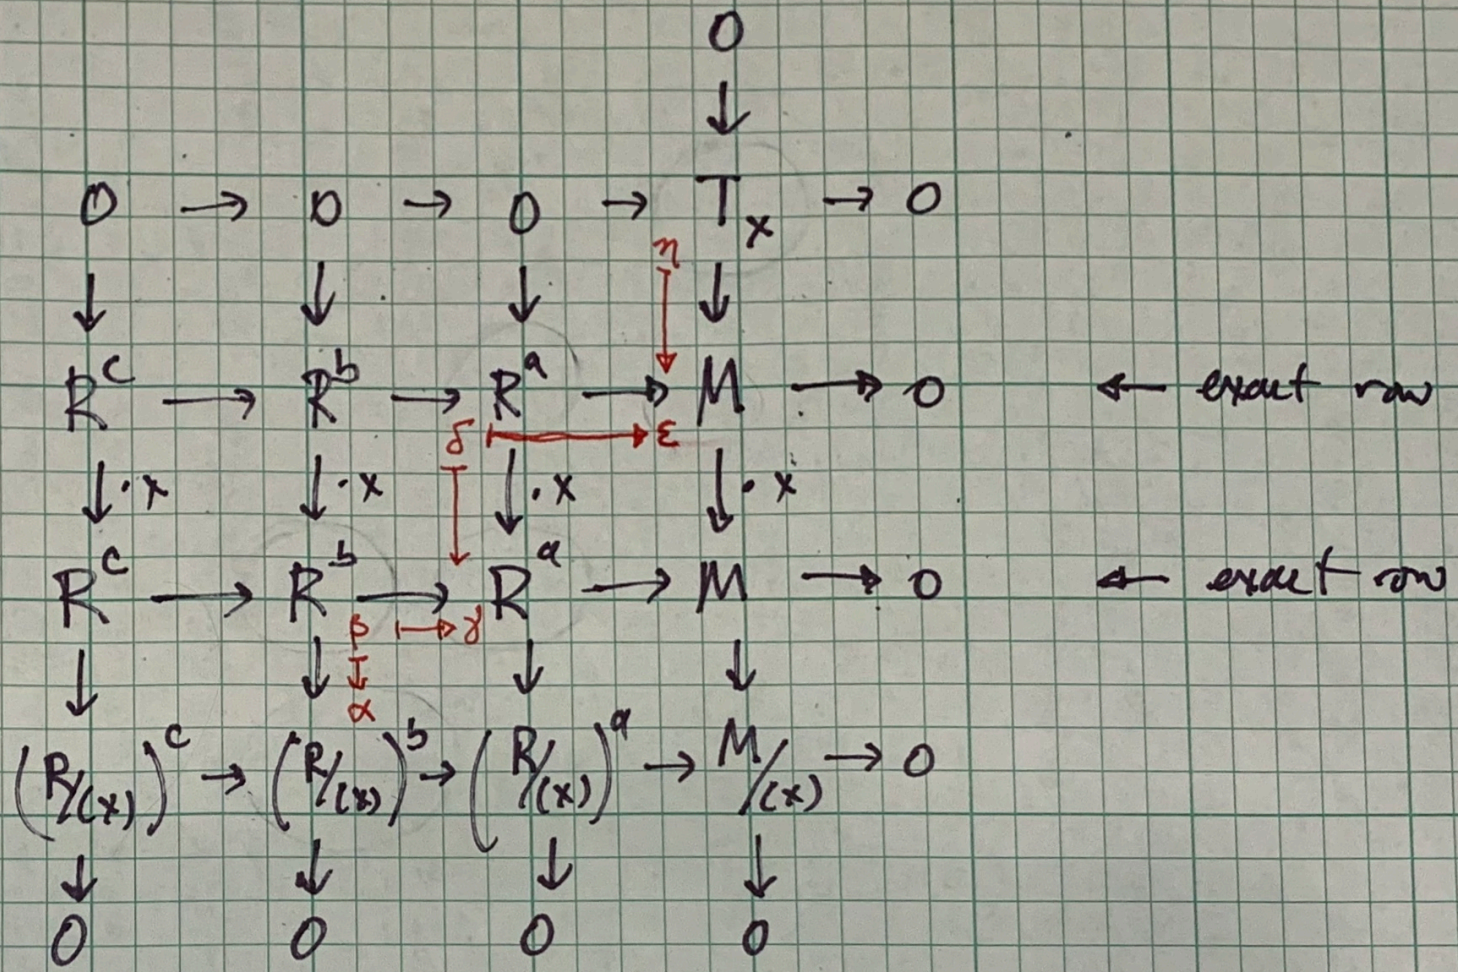 0
↓
0 → 0 → 0 → T_x → 0
η
↓ ↓ ↓ ↓
R^c → R^b → R^a → M → 0 ← exact row
δ ↦ ε
↓·x ↓·x ↓·x ↓·x
R^c → R^b → R^a → M → 0 ← exact row
β ↦ γ
↓ ↓ ↓ ↓
α
(R/(x))^c → (R/(x))^b → (R/(x))^a → M/(x) → 0
↓ ↓ ↓ ↓
0 0 0 0